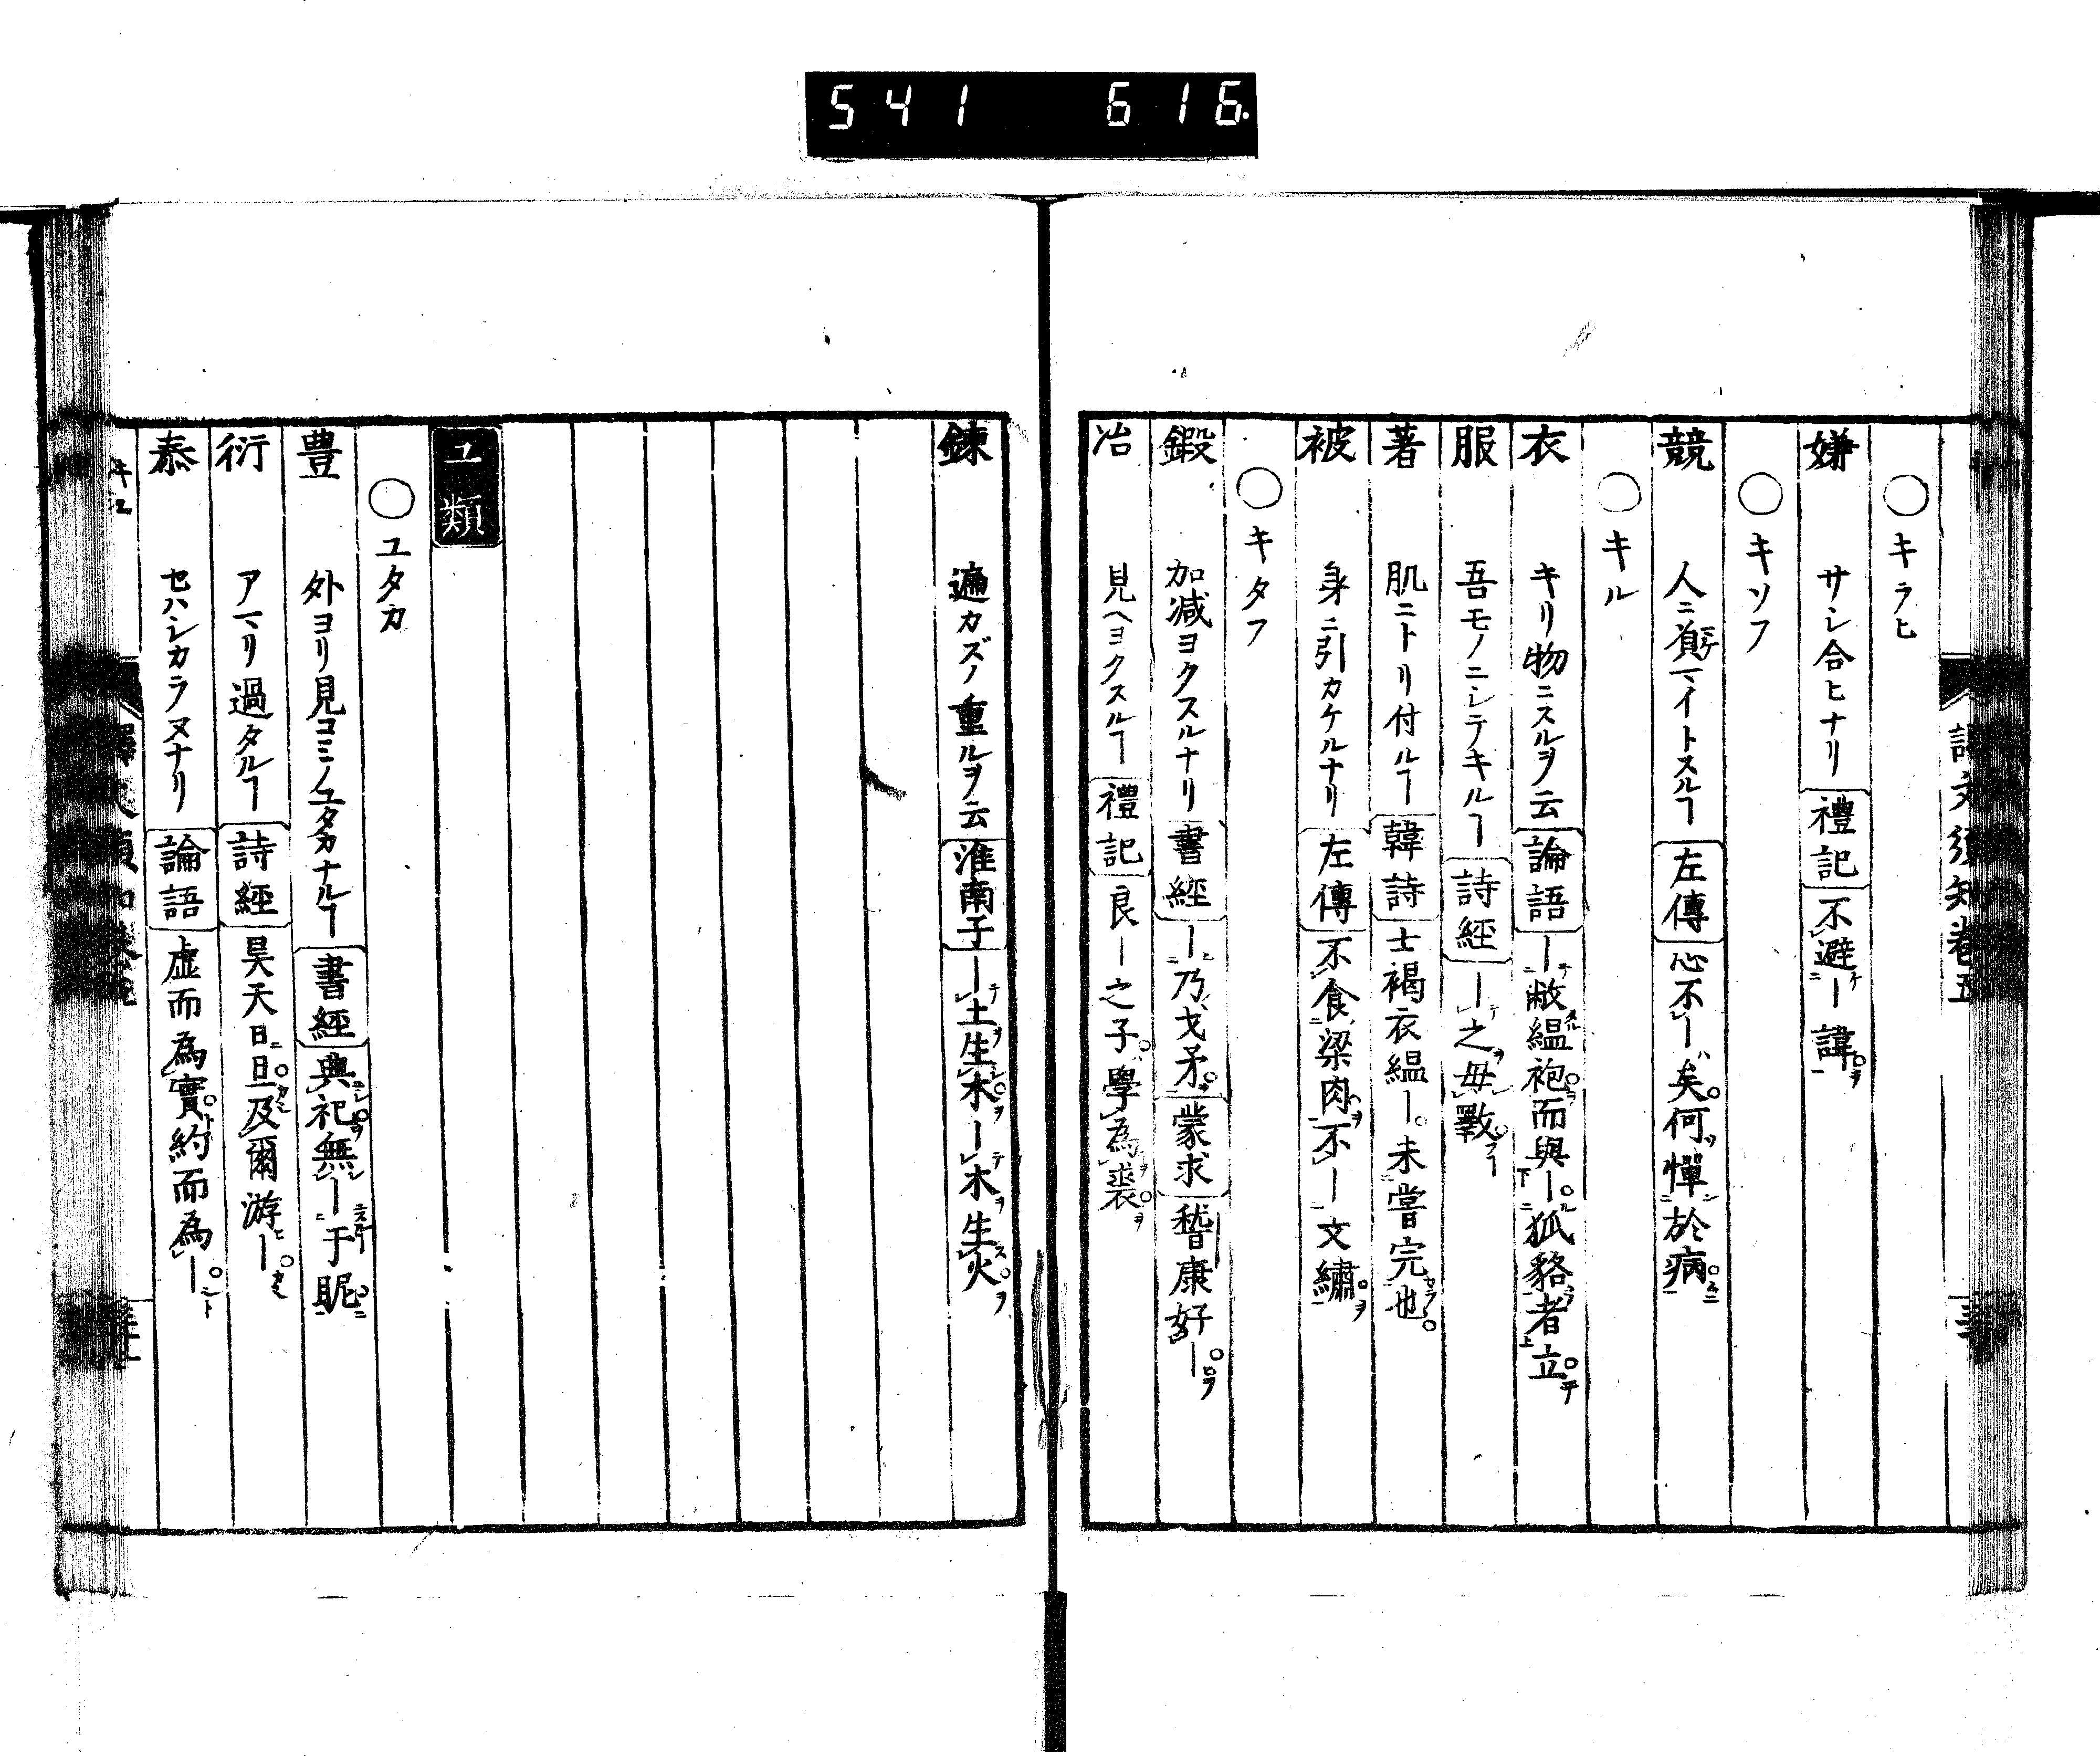 541 616.
譯文須知卷五
○キラヒ
嫌 サシ合ヒナリ 禮記 不避ケ一諱ヲ
○キソフ
競 人ニ負ケマイトスルヿ 左傳 心不一矣何憚於病
○キル
衣 キリ物ニスルヲ云 論語 一敝縕袍而與一狐貉者立
服 吾モノニシテキルヿ 詩經 一之毋斁
著 肌ニトリ付ルヿ 韓詩 士褐衣縕一未嘗完也
被 身ニ引カケルナリ 左傳 不食粱肉不一文繡
○キタフ
鍛 加減ヨクスルナリ 書經 一乃戈矛 蒙求 嵆康好一
冶 見ヘヨクスルヿ 禮記 良一之子學為裘
鍊 遍カズノ重ルヲ云 淮南子 一土生木一木生火
ユ類
○ユタカ
豊 外ヨリ見コミノユタカナルヿ 書經 典祀無一于昵
衍 アマリ過タルヿ 詩經 昊天曰旦及爾游一
泰 セハシカラヌナリ 論語 虚而為實約而為一
キユ